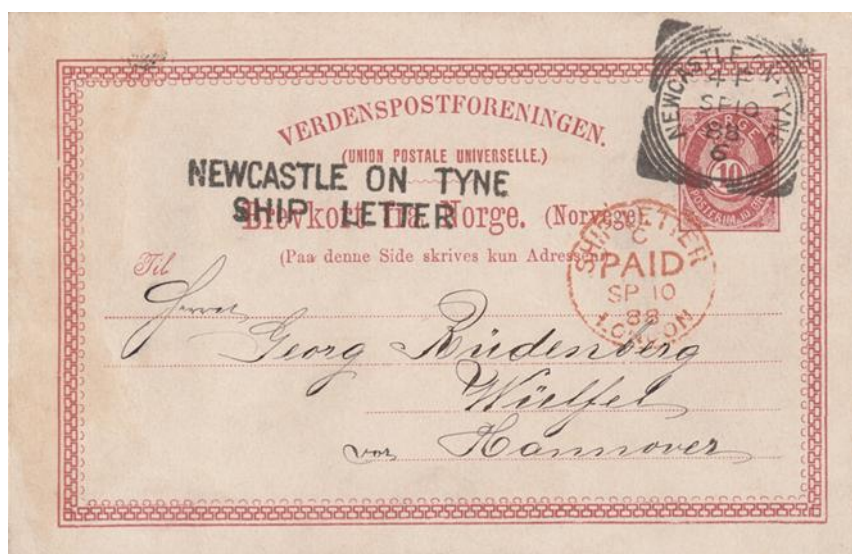 VERDENSPOSTFORENINGEN.
(UNION POSTALE UNIVERSELLE.)
NEWCASTLE ON TYNE
SHIP LETTER
Brevkort fra Norge. (Norvège)
(Paa denne Side skrives kun Adressen)
NEWCASTLE-ON-TYNE
4 F
SP 10
88
6
NORGE
10
POSTFRIM. 10 ØRE
SHIP LETTER
C
PAID
SP 10
88
LONDON
Til
Herrn
Georg Rüdenberg
Wülfel
vor Hannover